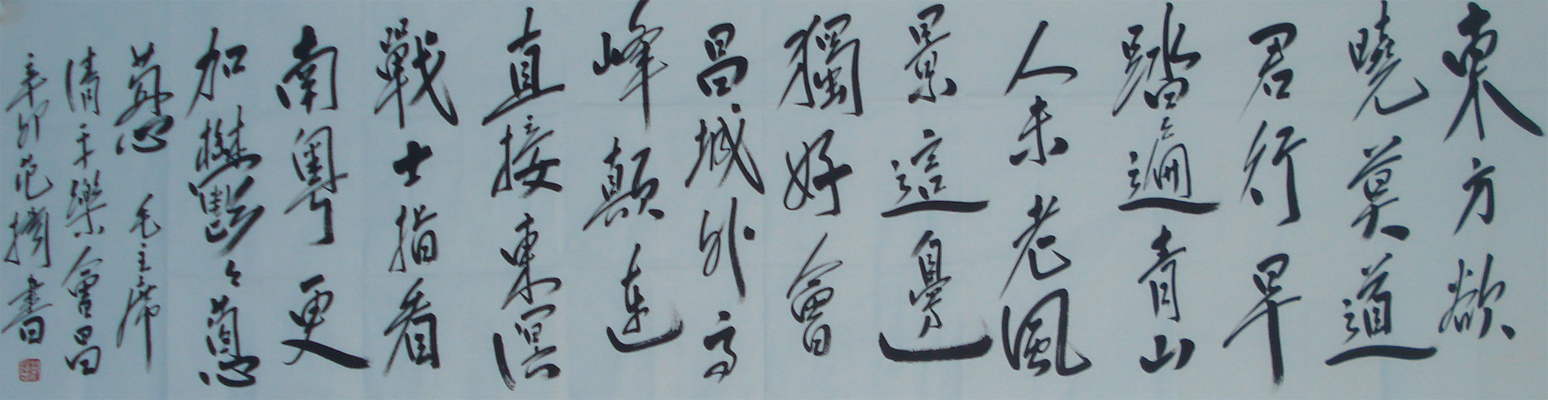 東方欲
曉莫道
君行早
踏遍青山
人未老風
景這邊
獨好會
昌城外高
峰顛連
直接東溟
戰士指看
南粵更
加鬱々蔥
蔥 毛主席
清平樂會昌
辛卯范書